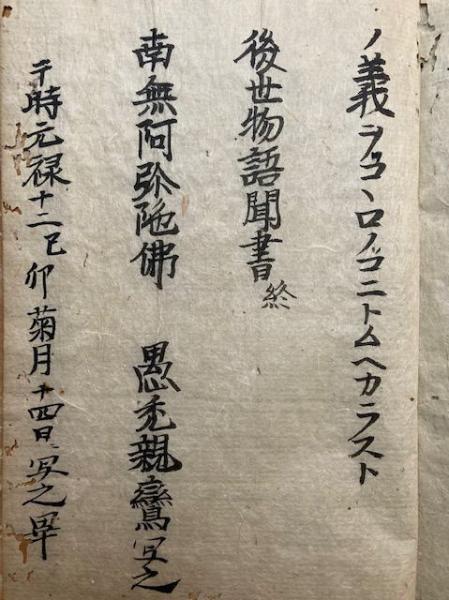 ノ義ヲコヽロノソコニトムヘカラスト
後世物語聞書 終
南無阿弥陀佛 愚禿親鸞写之
于時元禄十二己卯菊月十四日写之畢